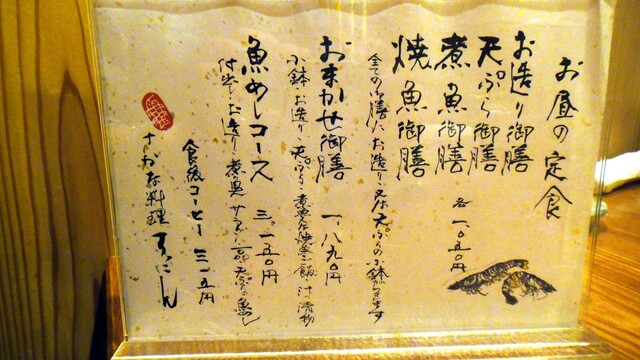 お昼の定食
お造り御膳
天ぷら御膳
煮魚御膳
焼魚御膳
各 一、〇五〇円
全ての御膳に、お造り、又は天ぷらの小鉢が付きます
おまかせ御膳 一、八九〇円
小鉢、お造り、天ぷら、煮魚又は焼魚、ご飯、汁、漬物
魚めしコース 三、一五〇円
付出し、お造り、煮魚
天ぷら、魚めし
食後コーヒー 三一五円
さかな料理